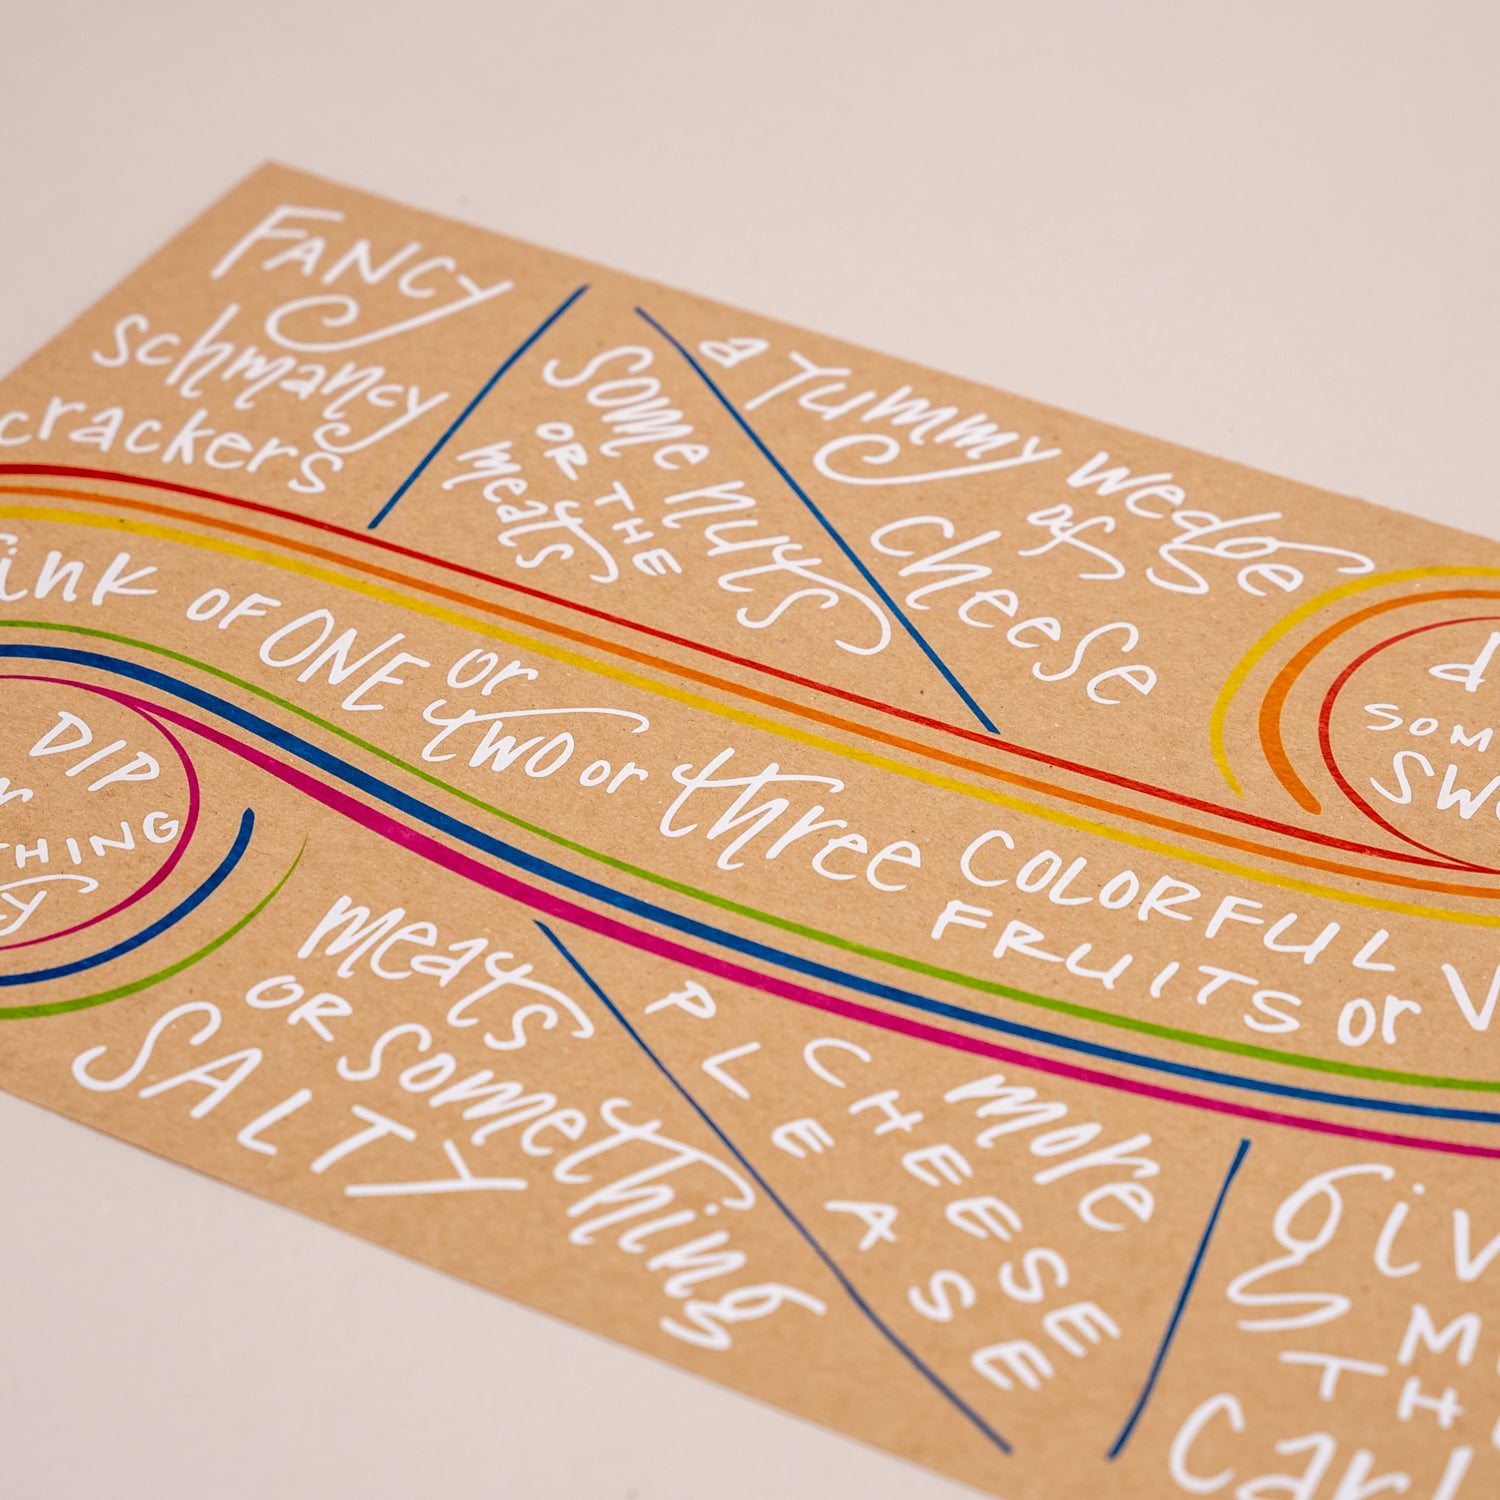 FANCY
schmancy
crackers
some nuts
OR THE
meats
a yummy wedge
of
cheese
OF ONE or two or three COLORFUL
FRUITS or
DIP
meats
OR something
SALTY
more
CHEESE
PLEASE